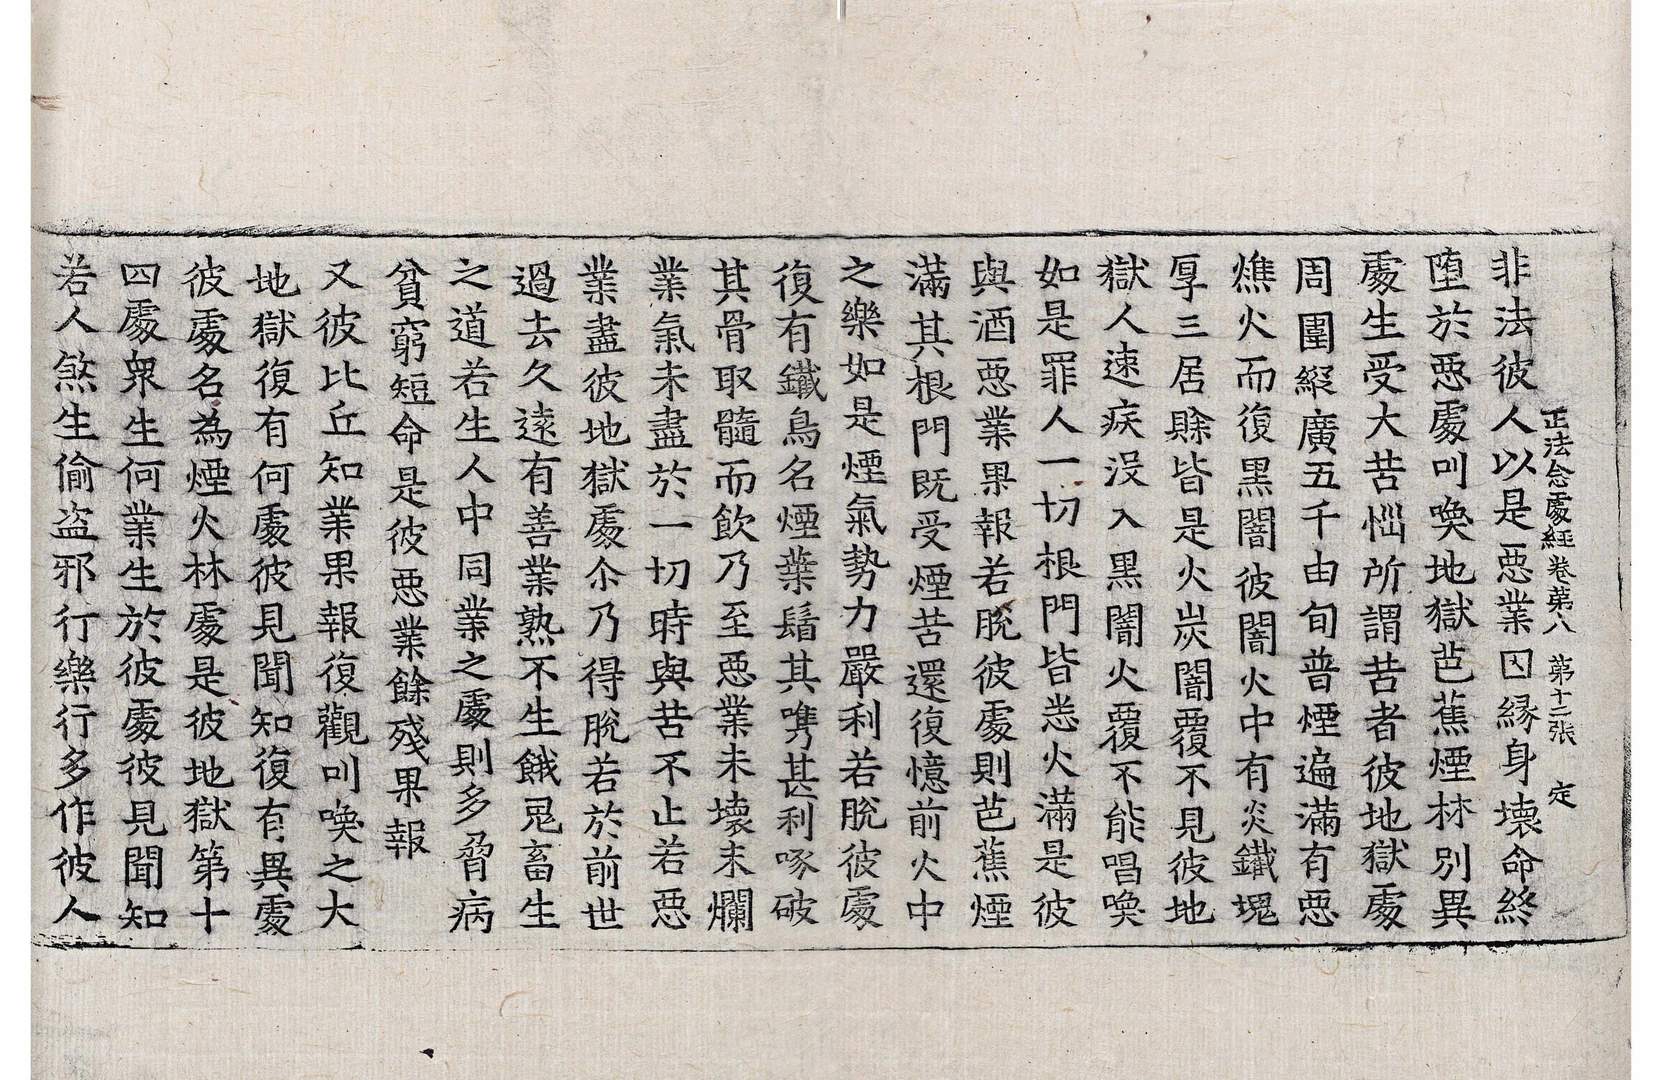 正法念處經卷第八　第十二張　定
非法彼人以是惡業因緣身壞命終
墮於惡處叫喚地獄芭蕉煙林別異
處生受大苦惱所謂苦者彼地獄處
周圍縱廣五千由旬普煙遍滿有惡
燋火而復黑闇彼闇火中有炎鐵塊
厚三居賖皆是火炭闇覆不見彼地
獄人速疾沒入黑闇火覆不能唱喚
如是罪人一切根門皆悉火滿是彼
與酒惡業果報若脫彼處則芭蕉煙
滿其根門既受煙苦還復憶前火中
之樂如是煙氣勢力嚴利若脫彼處
復有鐵鳥名煙葉鬘其嘴甚利啄破
其骨取髓而飲乃至惡業未壞未爛
業氣未盡於一切時與苦不止若惡
業盡彼地獄處尒乃得脫若於前世
過去久遠有善業熟不生餓鬼畜生
之道若生人中同業之處則多脅病
貧窮短命是彼惡業餘殘果報
又彼比丘知業果報復觀叫喚之大
地獄復有何處彼見聞知復有異處
彼處名為煙火林處是彼地獄第十
四處衆生何業生於彼處彼見聞知
若人煞生偷盜邪行樂行多作彼人